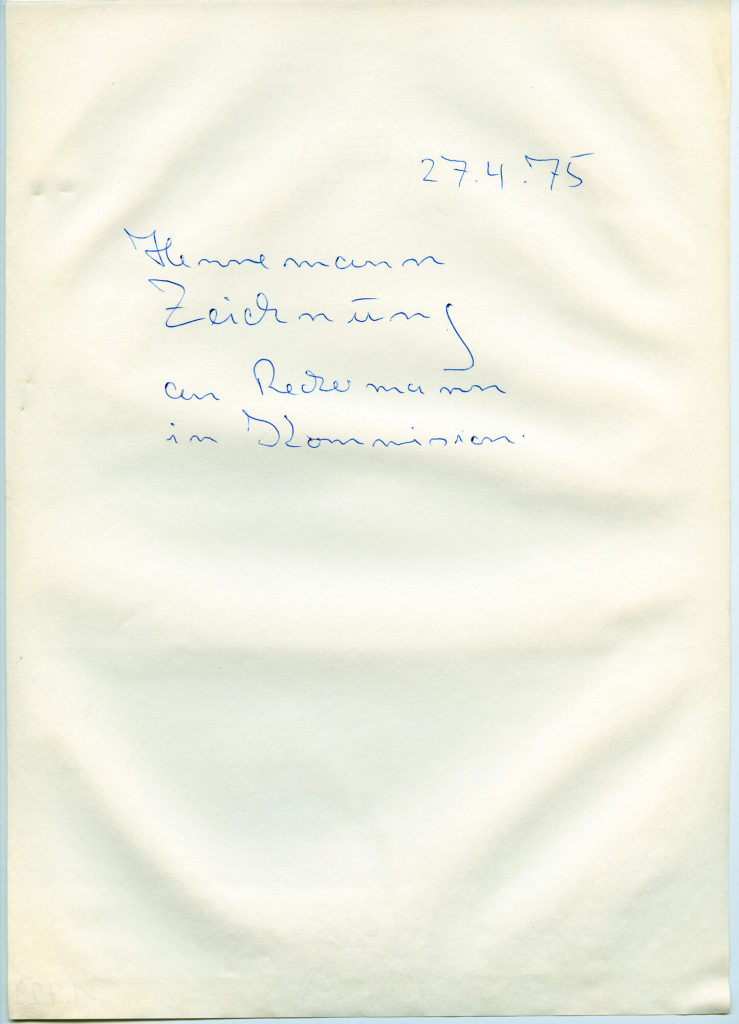 27.4.75
Hennemann
Zeichnung
an Reckermann
in Kommission.